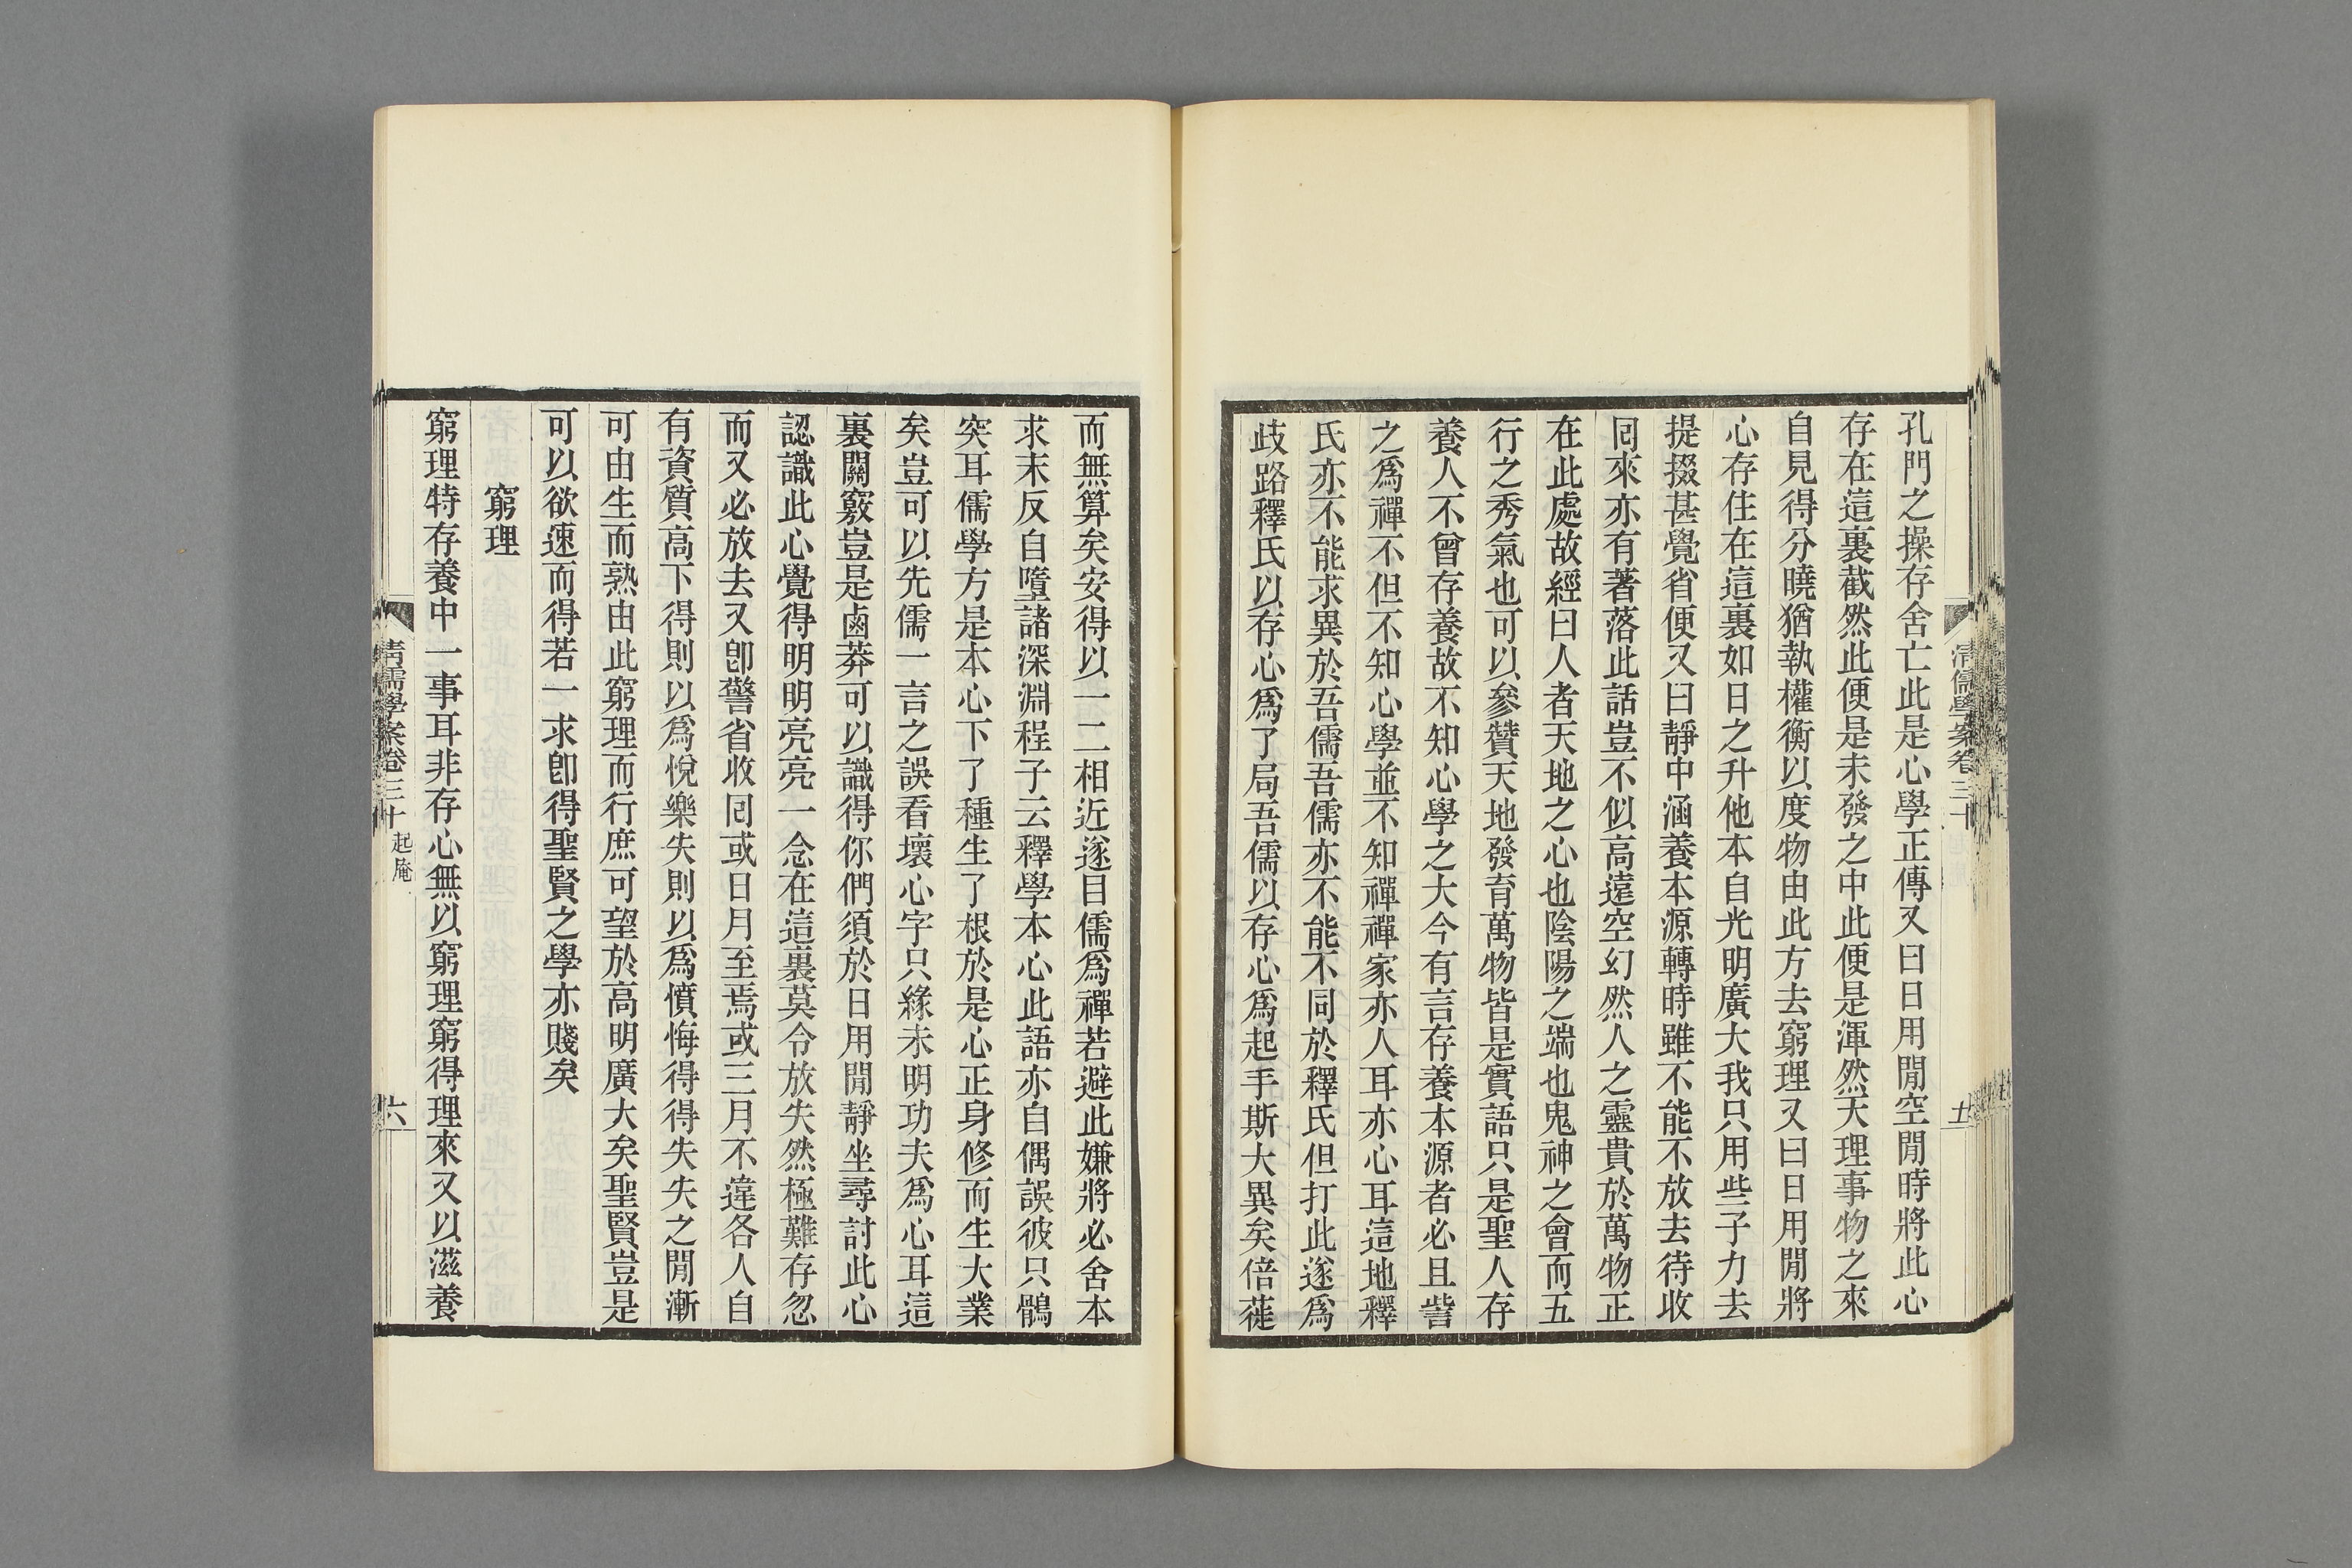 孔門之操存舍亡此是心學正傳又曰日用閒空閒時將此心
存在這裏截然此便是未發之中此便是渾然天理事物之來
自見得分曉猶執權衡以度物由此方去窮理又曰日用閒將
心存住在這裏如日之升他本自光明廣大我只用些子力去
提掇甚覺省便又曰靜中涵養本源轉時雖不能不放去待收
囘來亦有著落此話豈不似高遠空幻然人之靈貴於萬物正
在此處故經曰人者天地之心也陰陽之端也鬼神之會而五
行之秀氣也可以參贊天地發育萬物皆是實語只是聖人存
養人不曾存養故不知心學之大今有言存養本源者必且訾
之爲禪不但不知心學並不知禪禪家亦人耳亦心耳這地釋
氏亦不能求異於吾儒吾儒亦不能不同於釋氏但打此遂爲
歧路釋氏以存心爲了局吾儒以存心爲起手斯大異矣倍蓰
清儒學案卷三十
五
而無算矣安得以一二相近遂目儒爲禪若避此嫌將必舍本
求末反自墮諸深淵程子云釋學本心此語亦自偶誤彼只鶻
突耳儒學方是本心下了種生了根於是心正身修而生大業
矣豈可以先儒一言之誤看壞心字只緣未明功夫爲心耳這
裏關竅豈是鹵莽可以識得你們須於日用閒靜坐尋討此心
認識此心覺得明明亮亮一念在這裏莫令放失然極難存忽
而又必放去又卽警省收囘或日月至焉或三月不違各人自
有資質高下得則以爲悅樂失則以爲憤悔得得失失之閒漸
可由生而熟由此窮理而行庶可望於高明廣大矣聖賢豈是
可以欲速而得若一求卽得聖賢之學亦賤矣
窮理
窮理特存養中一事耳非存心無以窮理窮得理來又以滋養
清儒學案卷三十 起庵
六